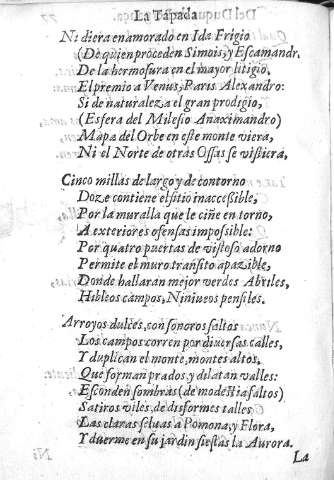 La Tapada
Ni diera enamorado en Ida Frigio
(De quien proceden Simois, y Escamandr.
De la hermosura en el mayor litigio,
El premio a Venus, Paris Alexandro:
Si de naturaleza el gran prodigio,
(Esfera del Milesio Anaximandro)
Mapa del Orbe en este monte viera,
Ni el Norte de otras Ossas se vistiera,
Cinco millas de largo y de contorno
Doze contiene el sitio inaccessible,
Por la muralla que le ciñe en torno,
A exteriores ofensas impossible:
Por quatro puertas de vistoso adorno
Permite el muro transito apazible,
Donde hallaran mejor verdes Abriles,
Hibleos campos, Niniueos pensiles.
Arroyos dulces, con sonoros saltos
Los campos corren por diuersas calles,
Y duplican el monte, montes altos,
Que forman prados, y dilatan valles:
Esconden sombras (de modestia faltos)
Satiros viles, de disformes talles
Las claras seluas a Pomona, y Flora,
Y duerme en su jardin siestas la Aurora.
La